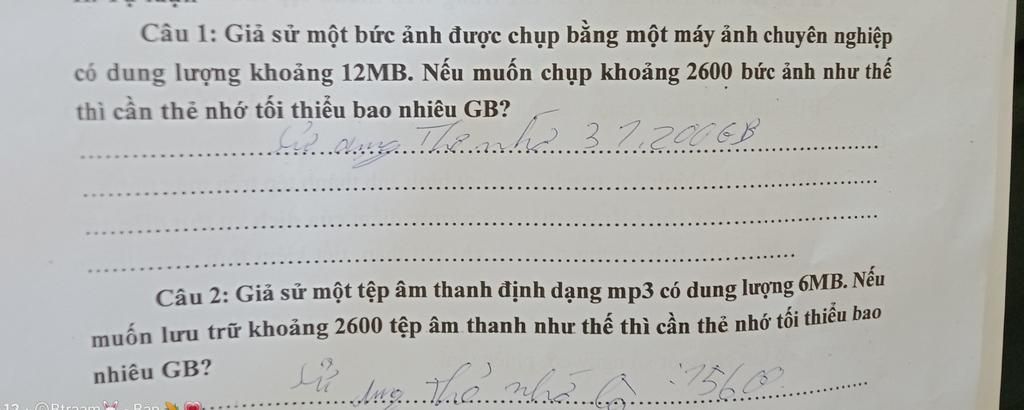 Câu 1: Giả sử một bức ảnh được chụp bằng một máy ảnh chuyên nghiệp
có dung lượng khoảng 12MB. Nếu muốn chụp khoảng 2600 bức ảnh như thế
thì cần thẻ nhớ tối thiểu bao nhiêu GB?
Sử dụng Thẻ nhớ 31,200GB
Câu 2: Giả sử một tệp âm thanh định dạng mp3 có dung lượng 6MB. Nếu
muốn lưu trữ khoảng 2600 tệp âm thanh như thế thì cần thẻ nhớ tối thiểu bao
nhiêu GB?
Sử dụng thẻ nhớ :15600